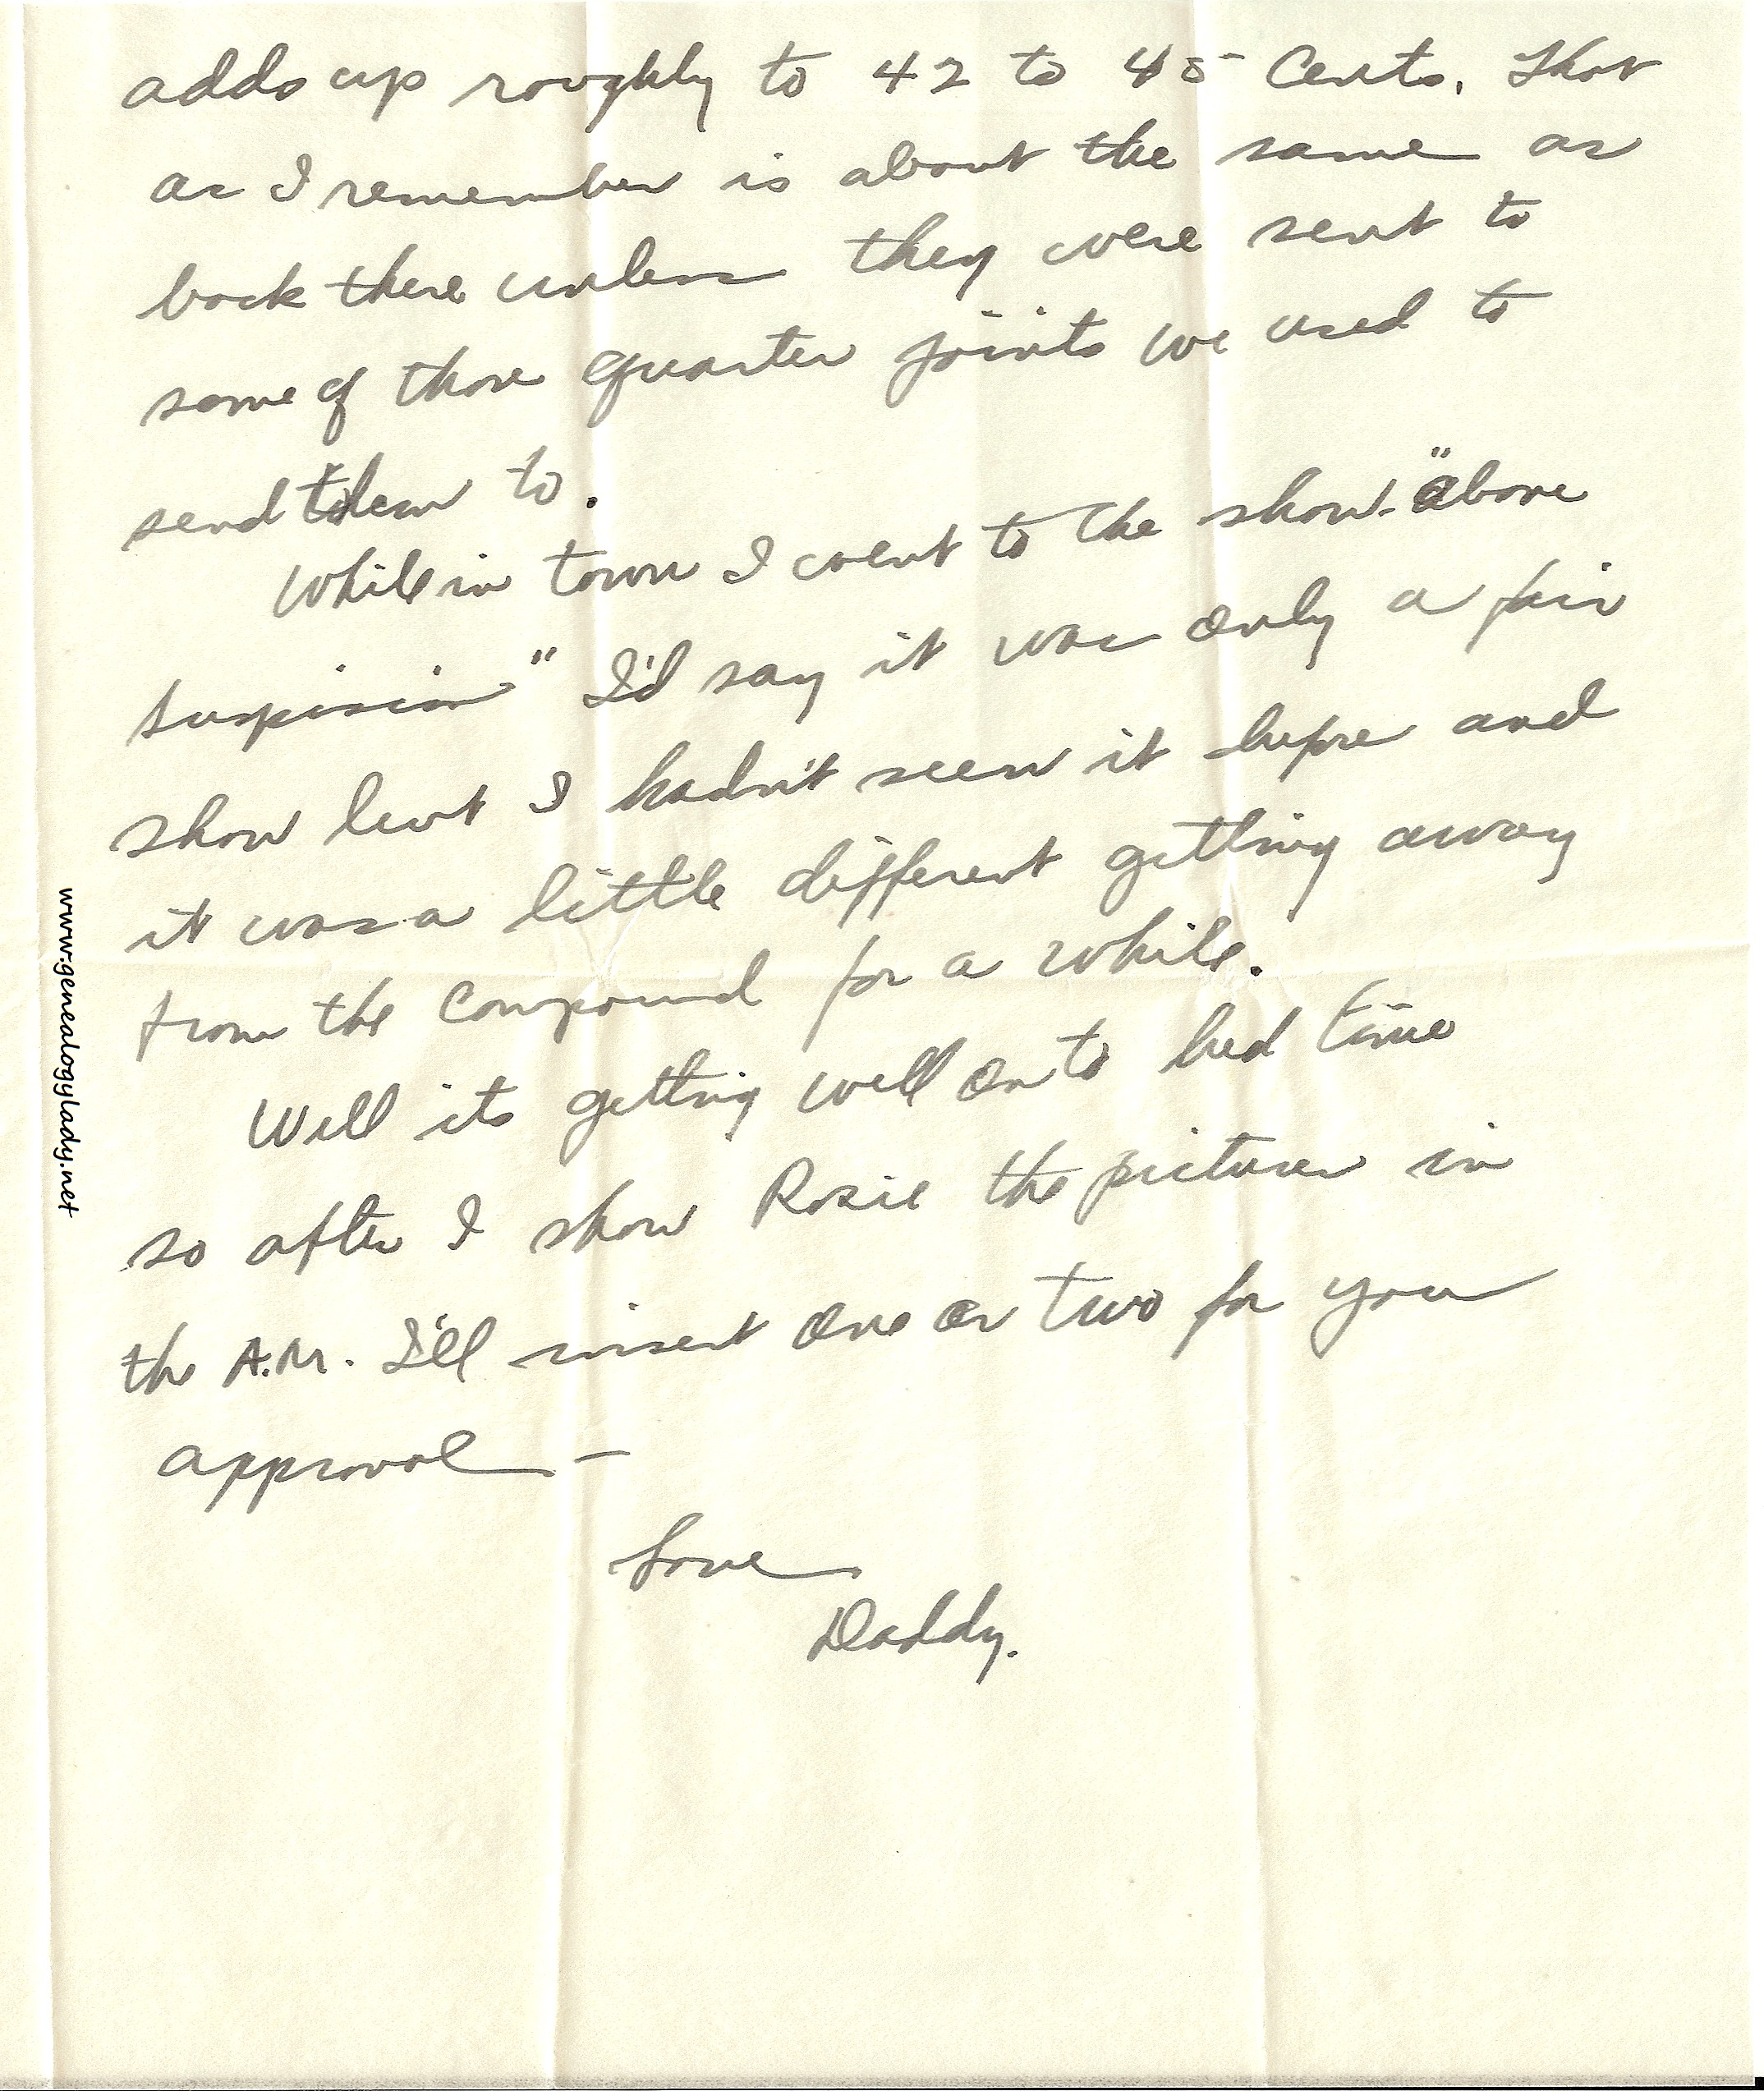 adds up roughly to 42 to 45 Cents. That
as I remember is about the same as
back there unless they were sent to
some of those quarter joints we used to
send them to.
While in town I went to the show. "above
suspision" I'd say it was only a fair
show but I hadn't seen it before and
it was a little different getting away
from the compound for a while.
Well its getting well on to bed time
so after I show Rosie the pictures in
the A.M. I'll insert one or two for you
approval –
Love
Daddy.
www.genealogylady.net